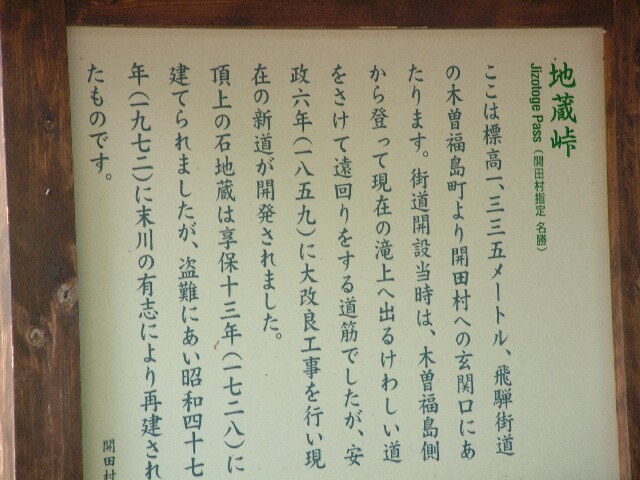 地蔵峠
Jizotoge Pass（開田村指定 名勝）
ここは標高一、三三五メートル、飛騨街道
の木曽福島町より開田村への玄関口にあ
たります。街道開設当時は、木曽福島側
から登って現在の滝上へ出るけわしい道
をさけて遠回りをする道筋でしたが、安
政六年（一八五九）に大改良工事を行い現
在の新道が開発されました。
頂上の石地蔵は享保十三年（一七二八）に
建てられましたが、盗難にあい昭和四十七
年（一九七二）に末川の有志により再建され
たものです。
開田村